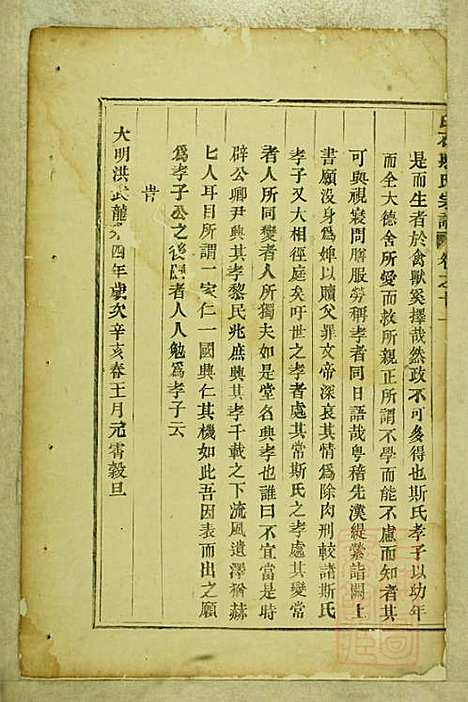 氏家譜 卷之十一
是而生者於禽獸奚擇哉然政不可多得也斯氏孝子以幼年
而全大德舍所愛而救所親正所謂不學而能不慮而知者其
可與視寢問膳服勞稱孝者同日語哉粵稽先漢緹縈詣闕上
書願没身為婢以贖父罪文帝深哀其情為除肉刑較諸斯氏
孝子又大相徑庭矣吁世之孝者處其常斯氏之孝處其變常
者人所同變者人所獨夫如是堂名興孝也誰曰不宜當是時
辟公卿尹興其孝黎民兆庶興其孝千載之下流風遺澤猶赫
七人耳目所謂一家仁一國興仁其機如此吾因表而出之願
為孝子公之後者人人勉為孝子云
旹
大明洪武龍飛四年歲次辛亥春王月元宵穀旦